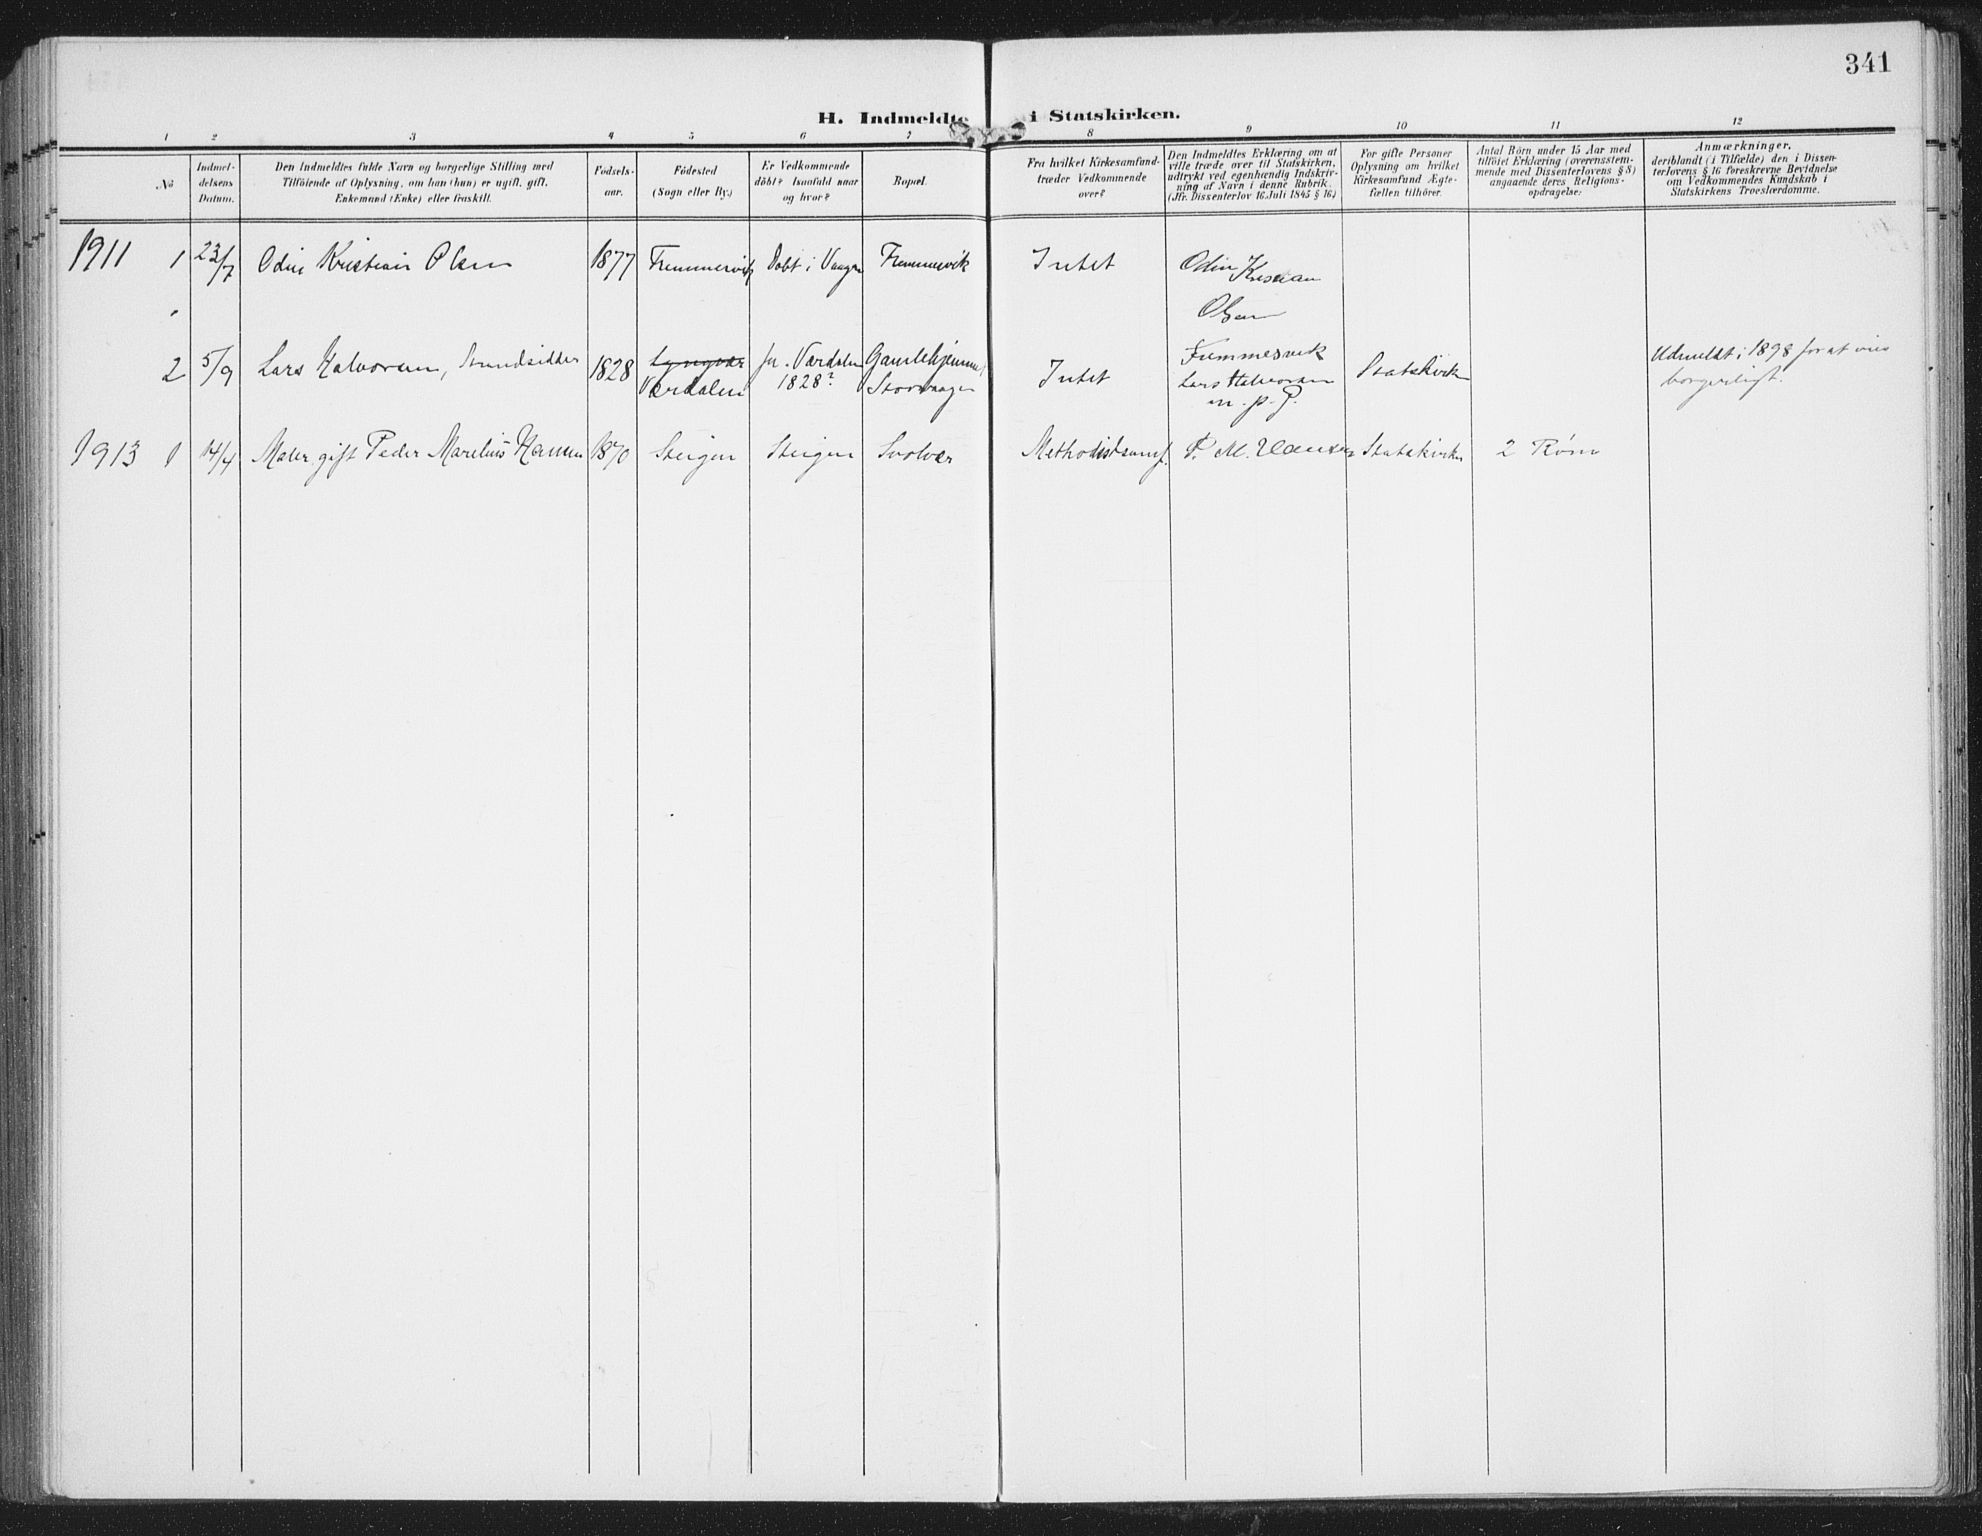 341
H. Indmeldte i Statskirken.
1 2 3 4 5 6 7 8 9 10 11 12
No
Indmel-
delsens
Datum.
Den Indmeldtes fulde Navn og borgerlige Stilling med
Tilföiende af Oplysning, om han (hun) er ugift, gift,
Enkemand (Enke) eller fraskilt.
Födsels-
aar.
Födested
(Sogn eller By.)
Er Vedkommende
döbt? Isaafald naar
og hvor?
Bopæl.
Fra hvilket Kirkesamfund-
træder Vedkommende
over?
Den Indmeldtes Erklæring om at
ville træde over til Statskirken,
udtrykt ved egenhændig Indskriv-
ning af Navn i denne Rubrik.
(Jfr. Dissenterlov 16 Juli 1845 § 16)
For gifte Personer
Oplysning om hvilket
Kirkesamfund Ægte-
fællen tilhörer.
Antal Börn under 15 Aar med
tilföiet Erklæring (overensstem-
mende med Dissenterlovens § 8)
angaaende deres Religions-
opdragelse.
Anmærkninger,
deriblandt (i Tilfælde) den i Dissen-
terlovens § 16 foreskrevne Bevidnelse
om Vedkommendes Kundskab i
Statskirkens Troeslærdomme.
1911 1 23/7 Odin Kristian Olsen 1877 Fremmervik Döbt i Vaagan Fremmesvik Intet Odin Kristian
Olsen
Fremmesvik
2 5/9 Lars Halvorsen, Strandsidder 1828 Lyngvær
Værdalen
jn. Værdalen
1828?
Gamlehjemmet
Storvaagan
Intet
Lars Halvorsen
m. p. P.
Statskirken
Udmeldt i 1898 for at vies
borgerligt.
1913 1 14/4 Maler, gift Peder Marelius Hansen 1870 Steigen Steigen Svolvær Methodistsamf. P. M. Hansen Statskirken 2 Börn